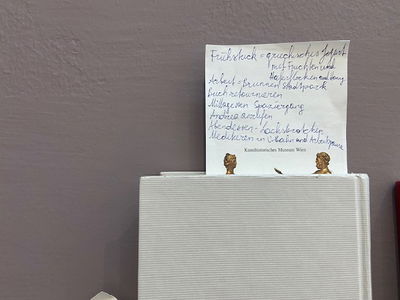 Frühstück = griechisches Jogurt
mit Früchten und
Haferflocken und Honig
Arbeit = Brunnen Stadtpark
Buch retournieren
Mittagessen Spaziergang
Andrea anrufen
Abendessen = Lachsbrötchen
Meditieren in U-Bahn und Arbeitspause
Kunsthistorisches Museum Wien